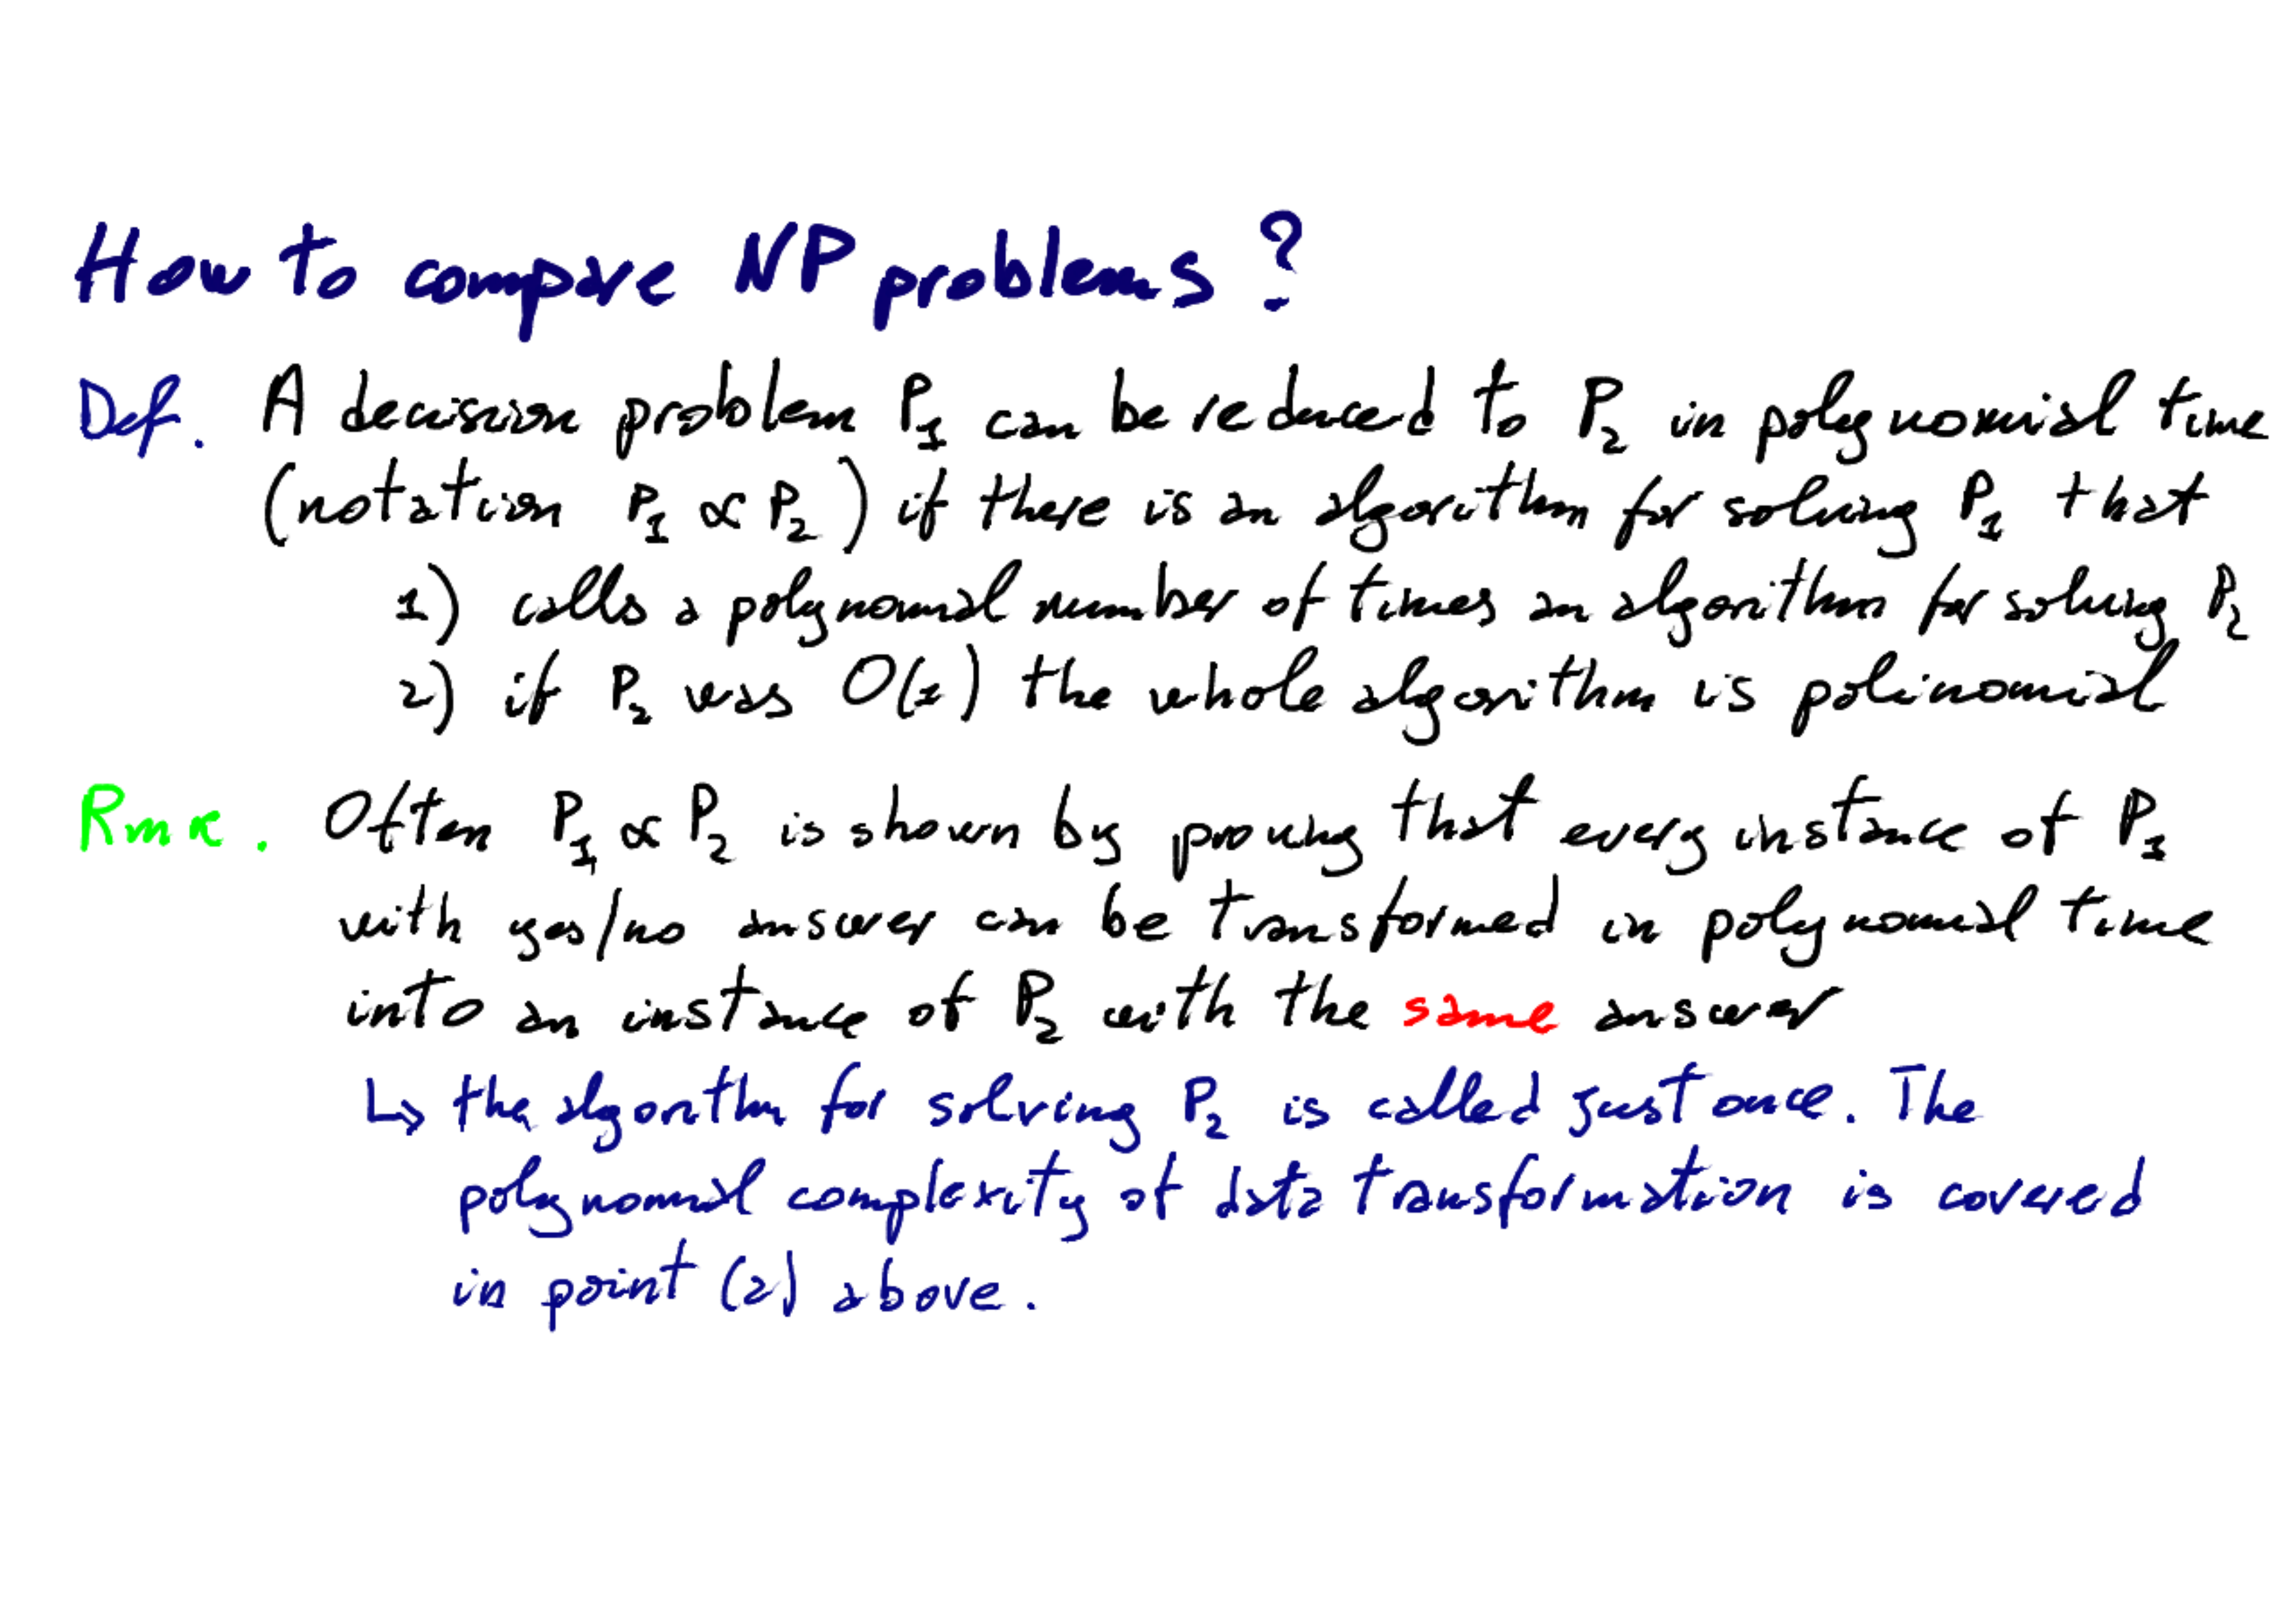 How to compare NP problems?
Def. A decision problem P₁ can be reduced to P₂ in polynomial time
(notation P₁ ∝ P₂) if there is an algorithm for solving P₁ that
1) calls a polynomial number of times an algorithm for solving P₂
2) if P₂ was O(1) the whole algorithm is polinomial
Rmk. Often P₁ ∝ P₂ is shown by proving that every instance of P₁
with yes/no answer can be transformed in polynomial time
into an instance of P₂ with the same answer
↳ the algorithm for solving P₂ is called just once. The
polynomial complexity of data transformation is covered
in point (2) above.